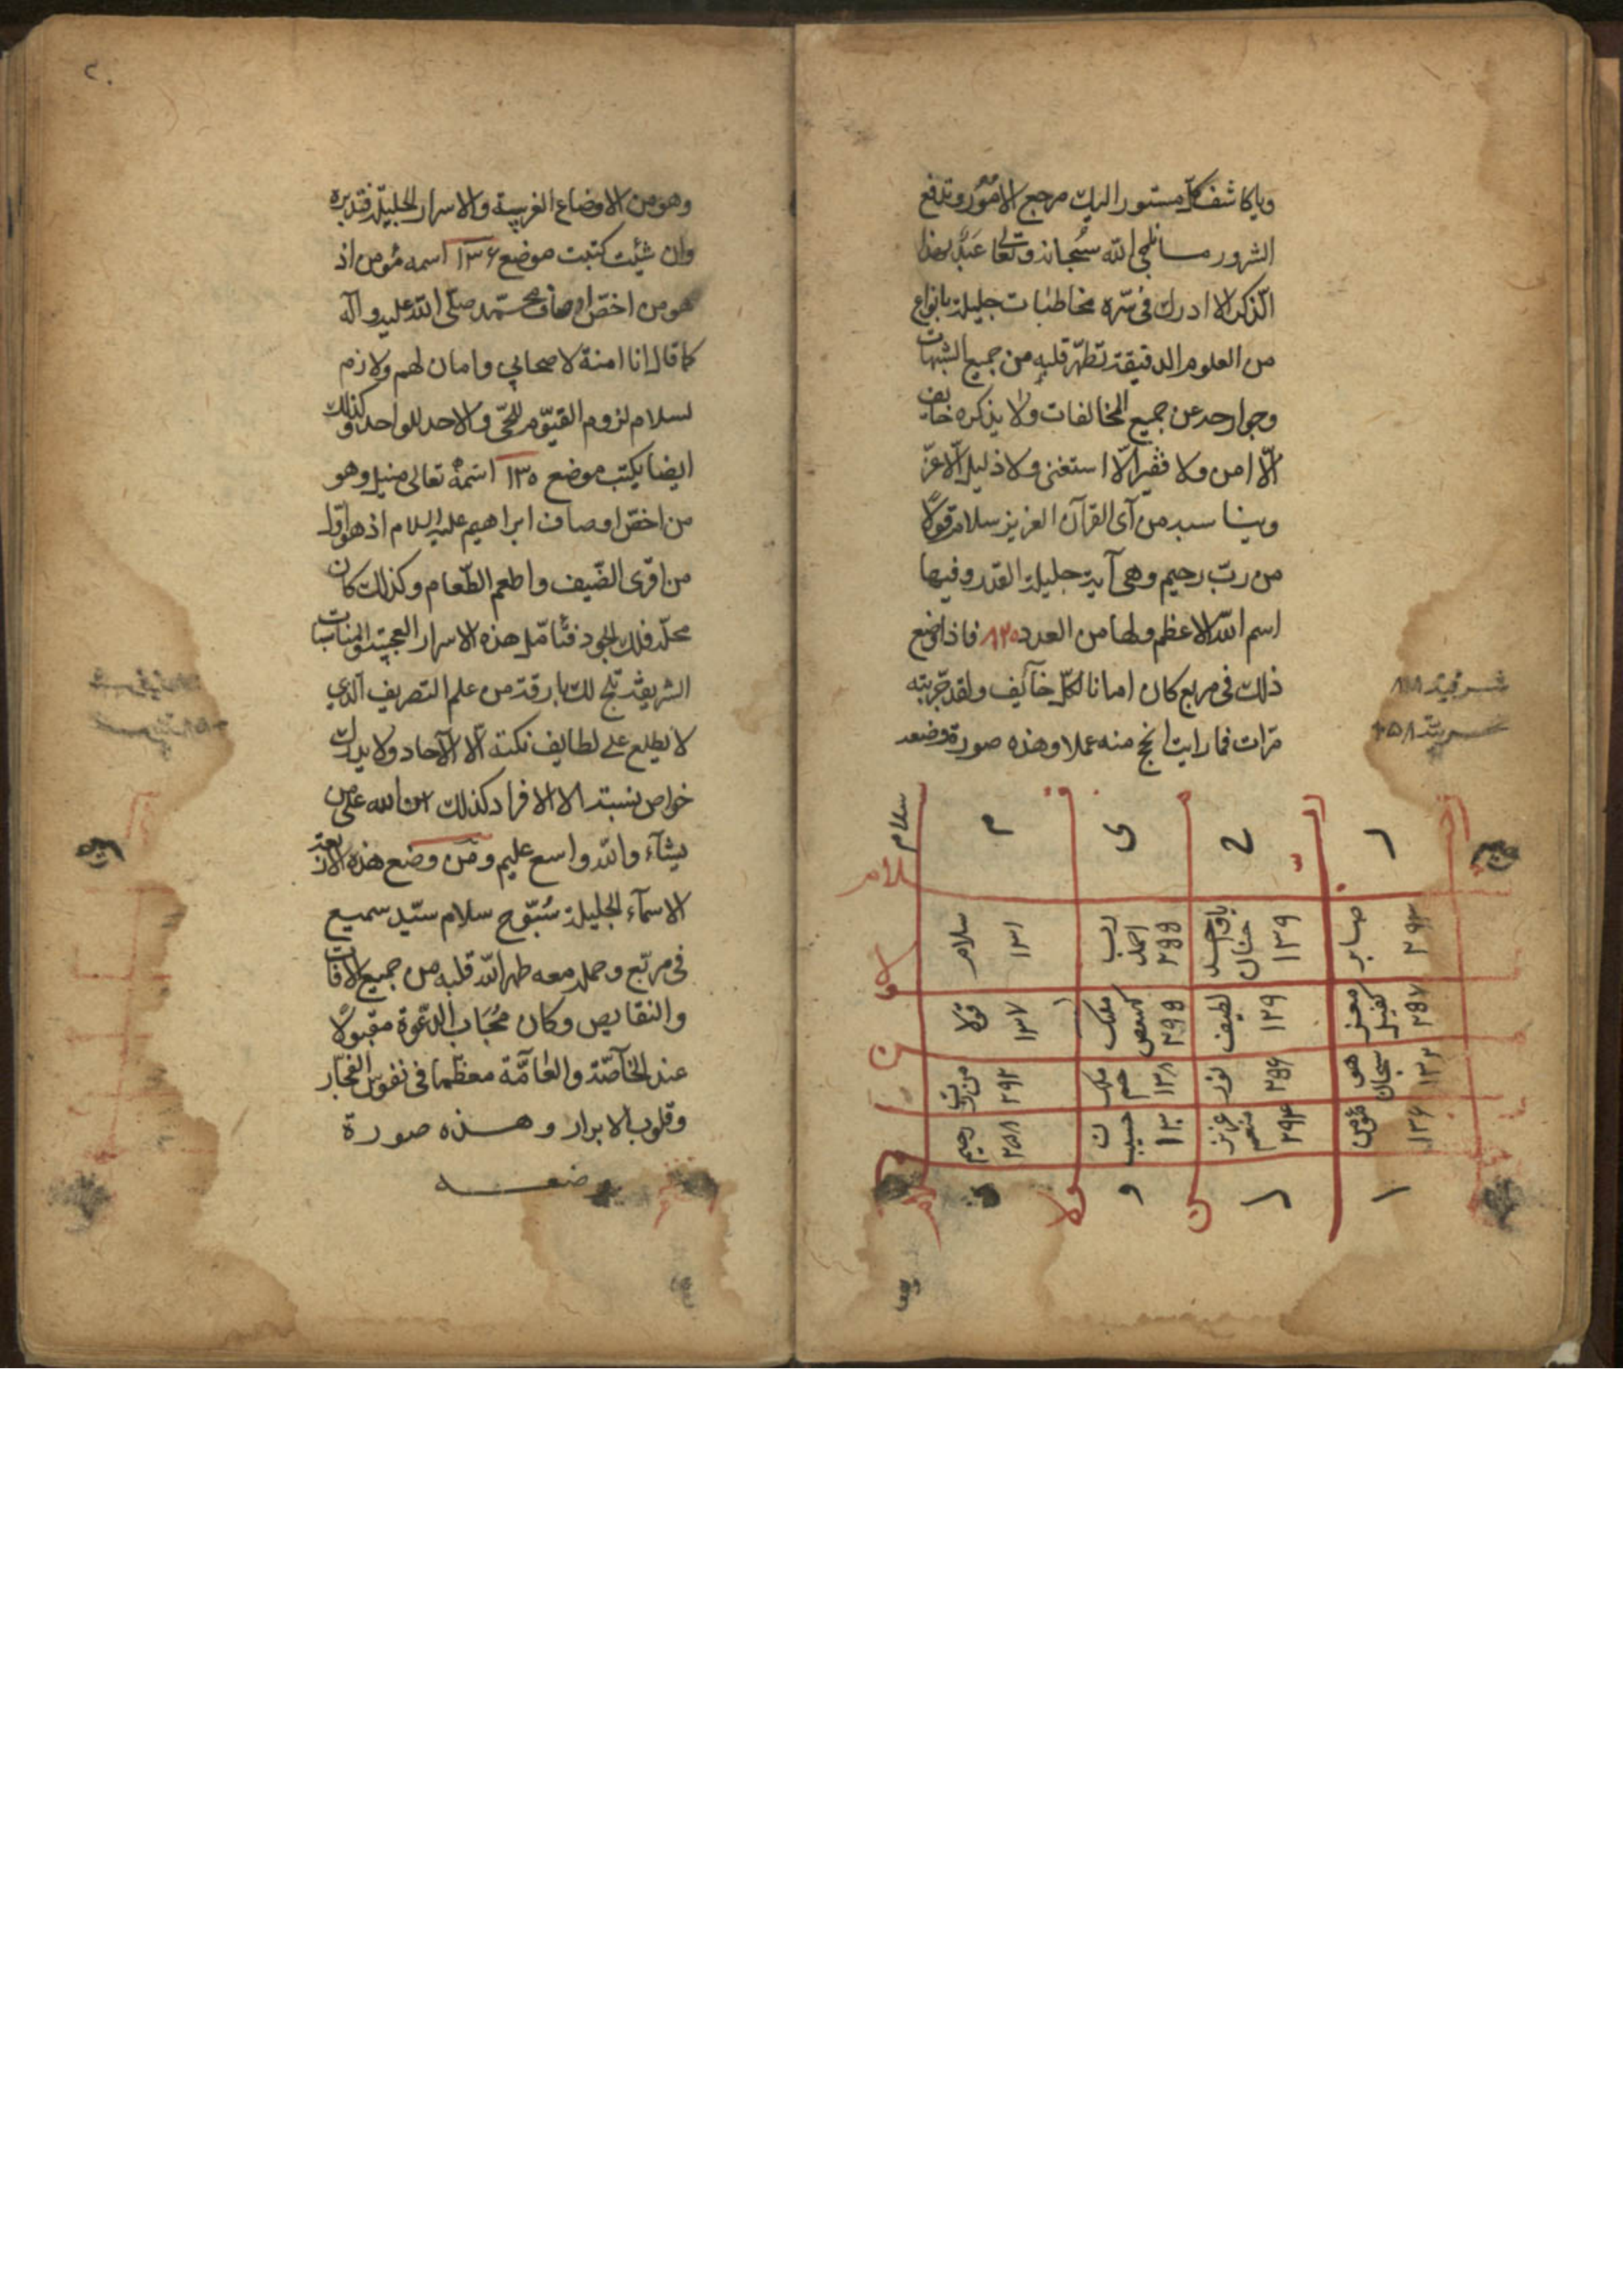 ويا كاشف كل مستور اليك مرجع الامور وتدفع
الشرور ما ناجى الله سبحانه وتعالى عبد بهذا
الذكر الا ادرك في سره مخاطبات جليلة بانواع
من العلوم الدقيقة تطهر قلبه من جميع الشبهات
وجوارحه عن جميع المخالفات ولا يذكره خايف
الّا امن ولا فقير الّا استغنى ولا ذليل الّا عزّ
ويناسبه من آى القرآن العزيز سلام قولاً
من ربّ رحيم وهى آية جليلة القدر وفيها
اسم الله الاعظم ولها من العدد ٨٢٥ فاذا وضع
ذلك في مربع كان امانا لكلّ خآئف ولقد جربته
مرّات فما رايت انجح منه عملا وهذه صورة وضعه
سلام
م ى ح ر
سلام ١٣١
رب احمد ٢٩٩
حنان ١٣٩
صابر ٢٩٣
قولا ١٣٧
ملك كهيعص
لطيف ١٢٩
معز كفيل ٢٨٧
من رب ٢٩٢
ملك حم ١٣٨
نور ٢٥٦
هو سبحان ١٣٢
رحيم ٢٥٨
حسيب ن ١٣٠
عزيز منعم ٢٩٤
مؤمن ١٣٦
وهو من الاوضاع الغريبة والاسرار الجليلة فتدبره
وان شئت كتبت موضع ١٣۶ اسمه مؤمن اذ
هو من اخصّ اوصاف محمّد صلّى الله عليه وآله
كما قال انا امنة لاصحابي وامان لهم ولازم
لسلام لزوم القيّوم للحيّ والاحد للواحد وكذلك
ايضا يكتب موضع ١٣٥ اسمه تعالى منيل وهو
من اخصّ اوصاف ابراهيم عليه السلام اذ هو اوّل
من اقرى الضّيف واطعم الطّعام وكذلك كان
محلّه فلك الجود فتأمّل هذه الاسرار العجيبة والمناسبات
الشريفة تلج لك بارقة من علم التصريف الّذي
لا يطلع على لطايف نكته الّا الآحاد ولا يدرك
خواص نسبته الا الافراد كذلك امن الله على من
يشآء والله واسع عليم ومن وضع هذه الاربعة
الاسمآء الجليلة سُبّوح سلام سيّد سميع
في مربّع وحمله معه طهر الله قلبه من جميع الآفات
والنقايص وكان مُجَاب الدّعوة مقبولاً
عند الخآصّة والعَامَّة معظّما في نفوس الفجّار
وقلوب الابرار وهذه صورة
وضعه